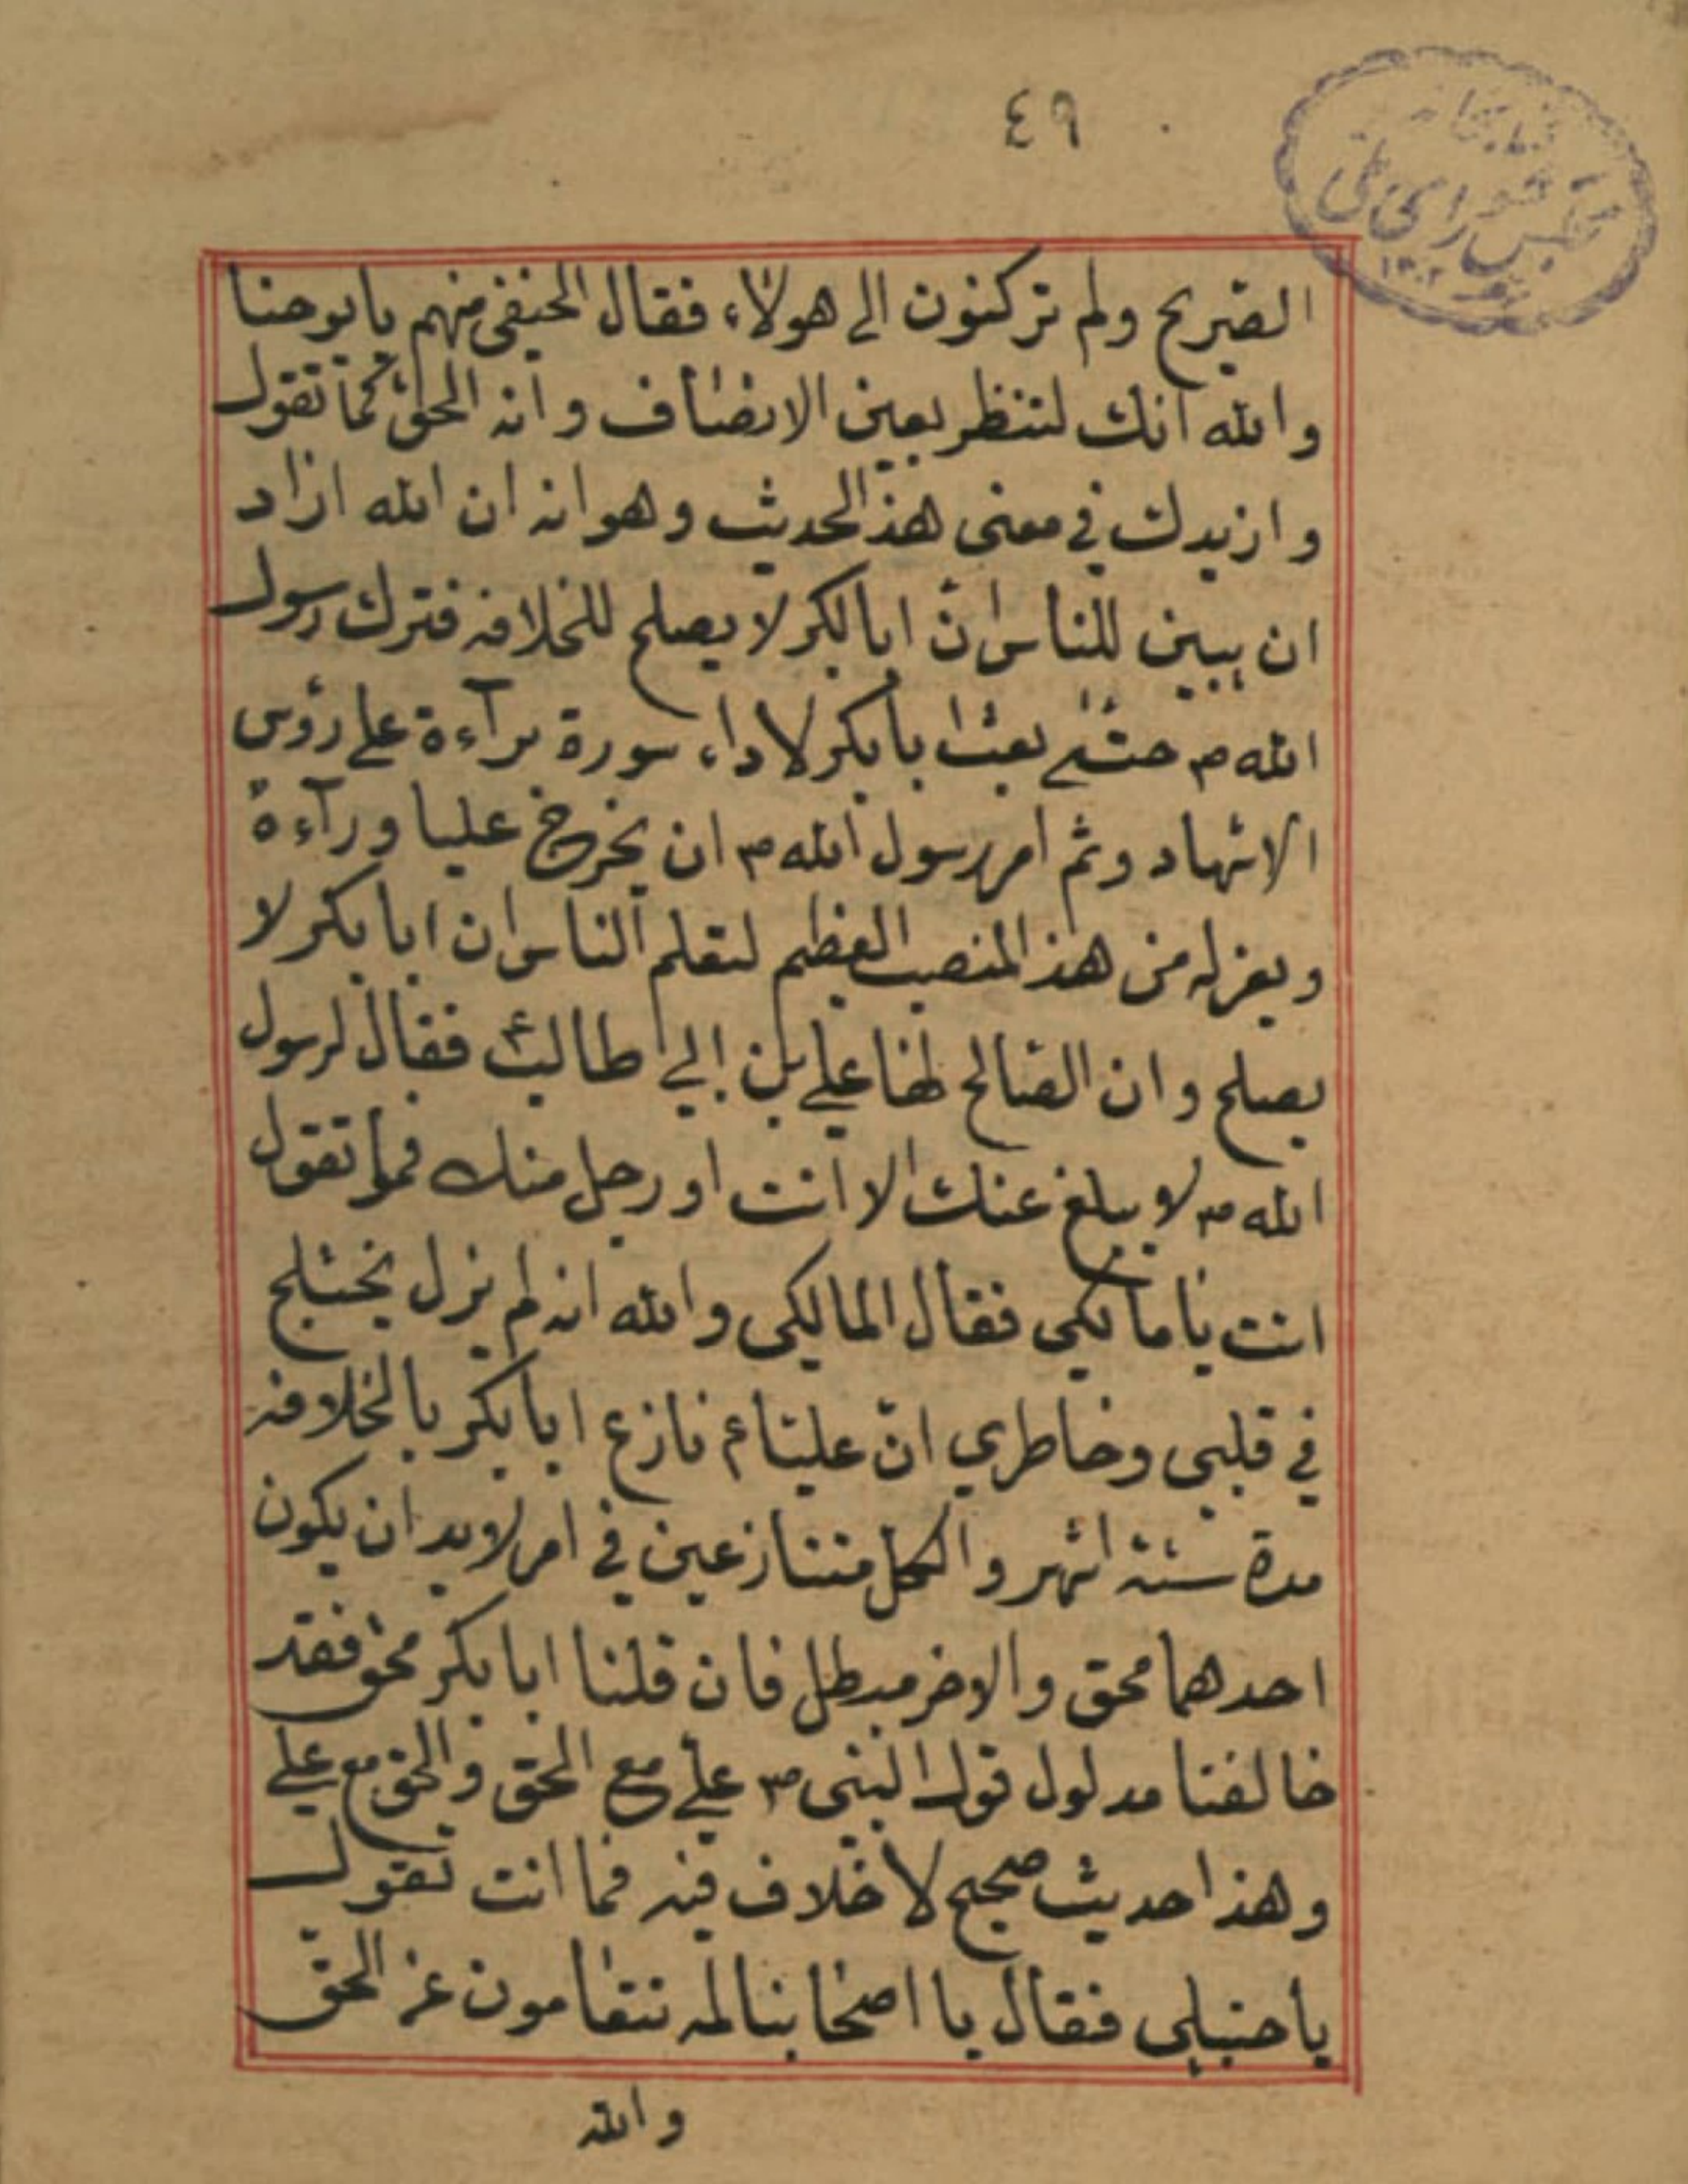 ٤٩
كتابخانه
مجلس شورای ملی
١٣٠٢
الصّريح ولم تركنون الى هولاٰء، فقال الحنيفى منهم يا يوحنا
والله انك لتنظر بعين الانصاف وانه الحق كما تقول
وازيدك في معنى هذا الحديث وهو انه ان الله اراد
ان يبين للناس انّ ابابكر لا يصلح للخلافه فترك رسول
الله ص حتى بعث ابابكر لاداء سورة براءة على رؤس
الاشهاد وثم امر رسول الله ص ان يخرج عليا ورآءه
ويعزله من هذا المنصب العظيم لتعلم الناس ان ابابكر لا
يصلح وان الصالح لها علي بن ابي طالب ع فقال لرسول
الله ص لا يبلغ عنك الا انت او رجل منك فما تقول
انت يا مالكي فقال المالكي والله انه لم يزل يختلج
في قلبي وخاطري انّ عليا ع نازع ابابكر بالخلافه
مدة ستة اشهر والكل متنازعين في امر لابد ان يكون
احدهما محق والاخر مبطل فان قلنا ابابكر محق فقد
خالفنا مدلول قول النبى ص علي مع الحق والحق مع علي
وهذا حديث صحيح لا خلاف فيه فما انت تقول
يا حنبلي فقال يا اصحابنا لمه نتعامون عن الحق
والله